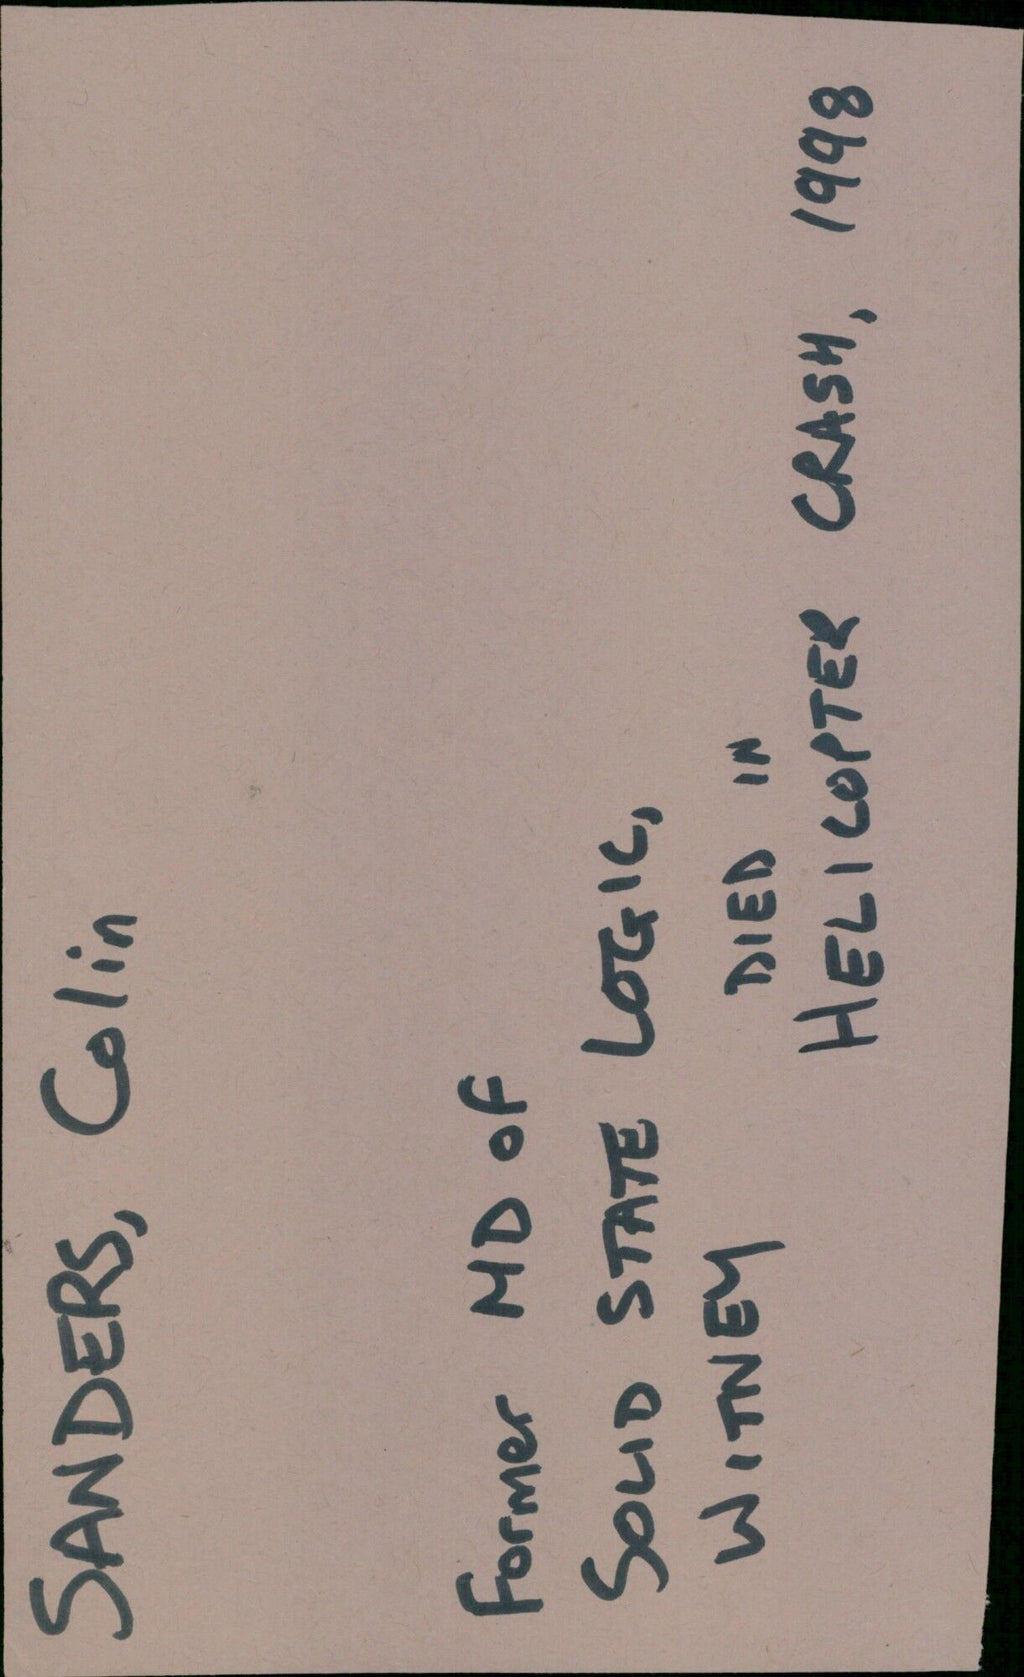 SANDERS, Colin
Former MD of
SOLID STATE LOGIC,
WITNEY
DIED IN
HELICOPTER CRASH, 1998